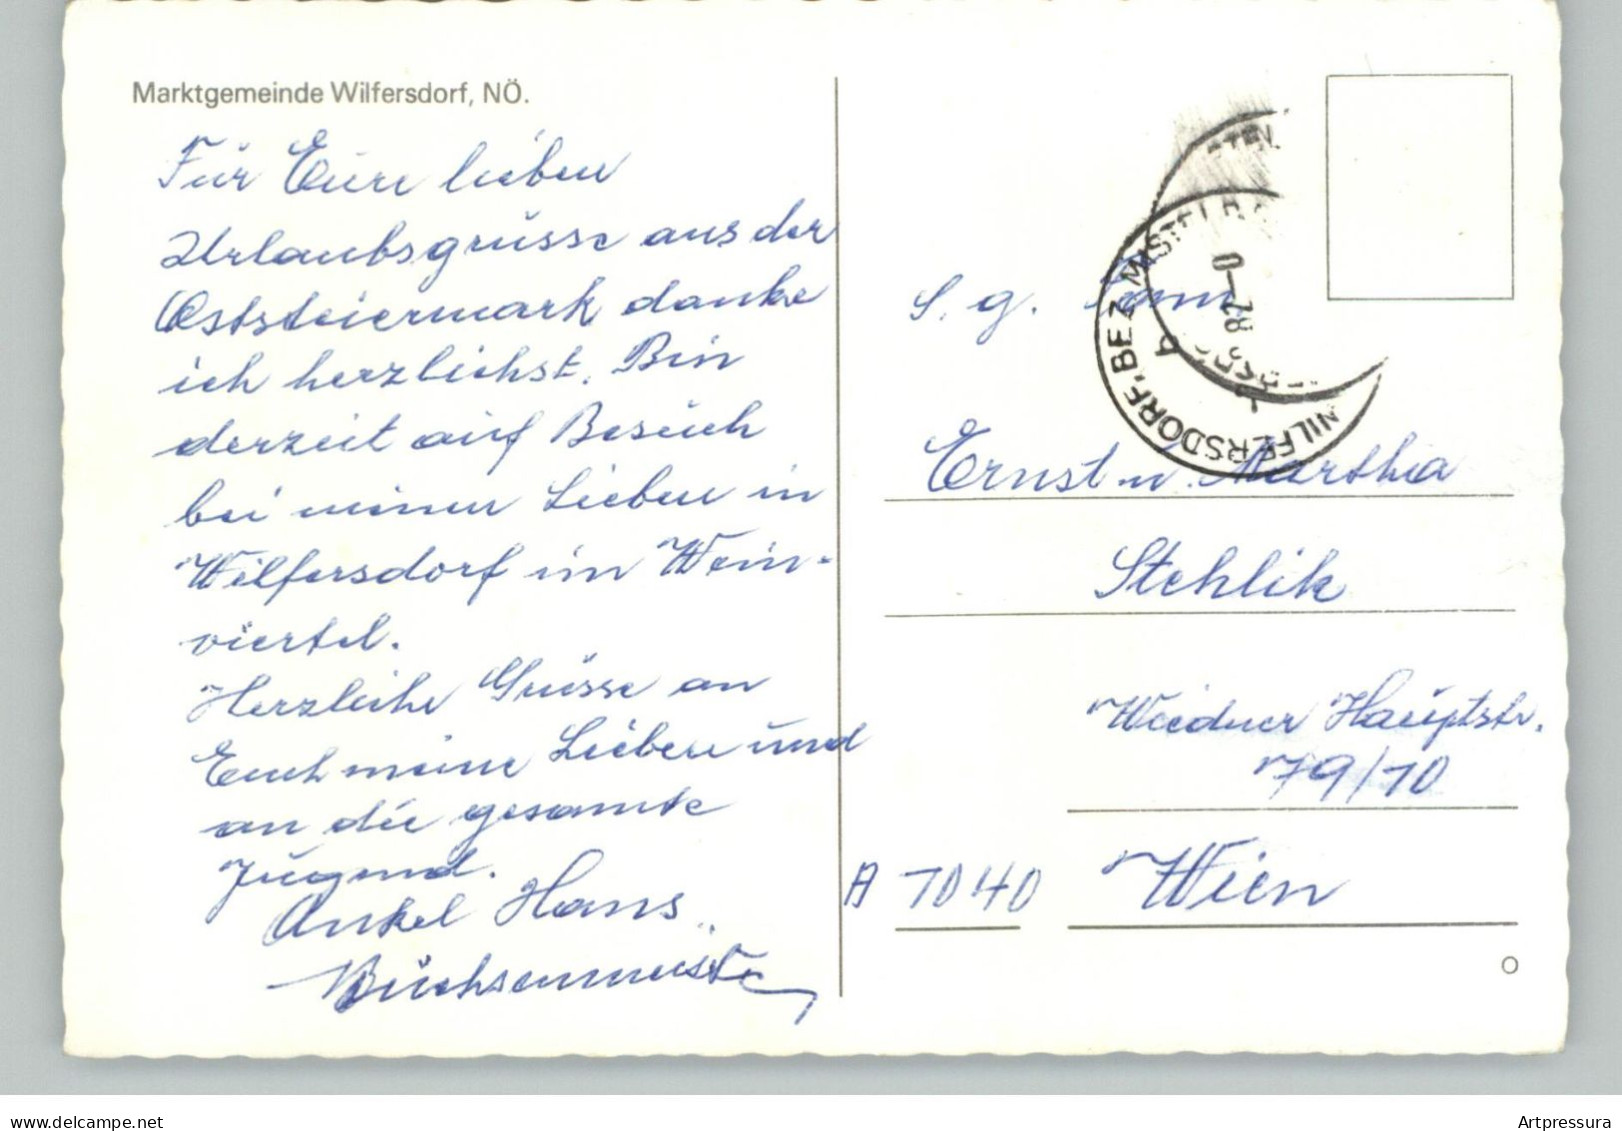 Marktgemeinde Wilfersdorf, NÖ.
Für Eure lieben
Urlaubsgrüsse aus der
Oststeiermark danke
ich herzlichst. Bin
derzeit auf Besuch
bei meinen Lieben in
Wilfersdorf im Wein-
viertel.
Herzliche Grüsse an
Euch meine Lieben und
an die gesamte
Jugend.
Onkel Hans
Büchsenmeister
WILFERSDORF, BEZ MISTELBA
b
S. g. Fam.
Ernst u. Martha
Stehlik
Wiedner Hauptstr.
79/10
A 1040 Wien
O
delcampe.net
Artpressura